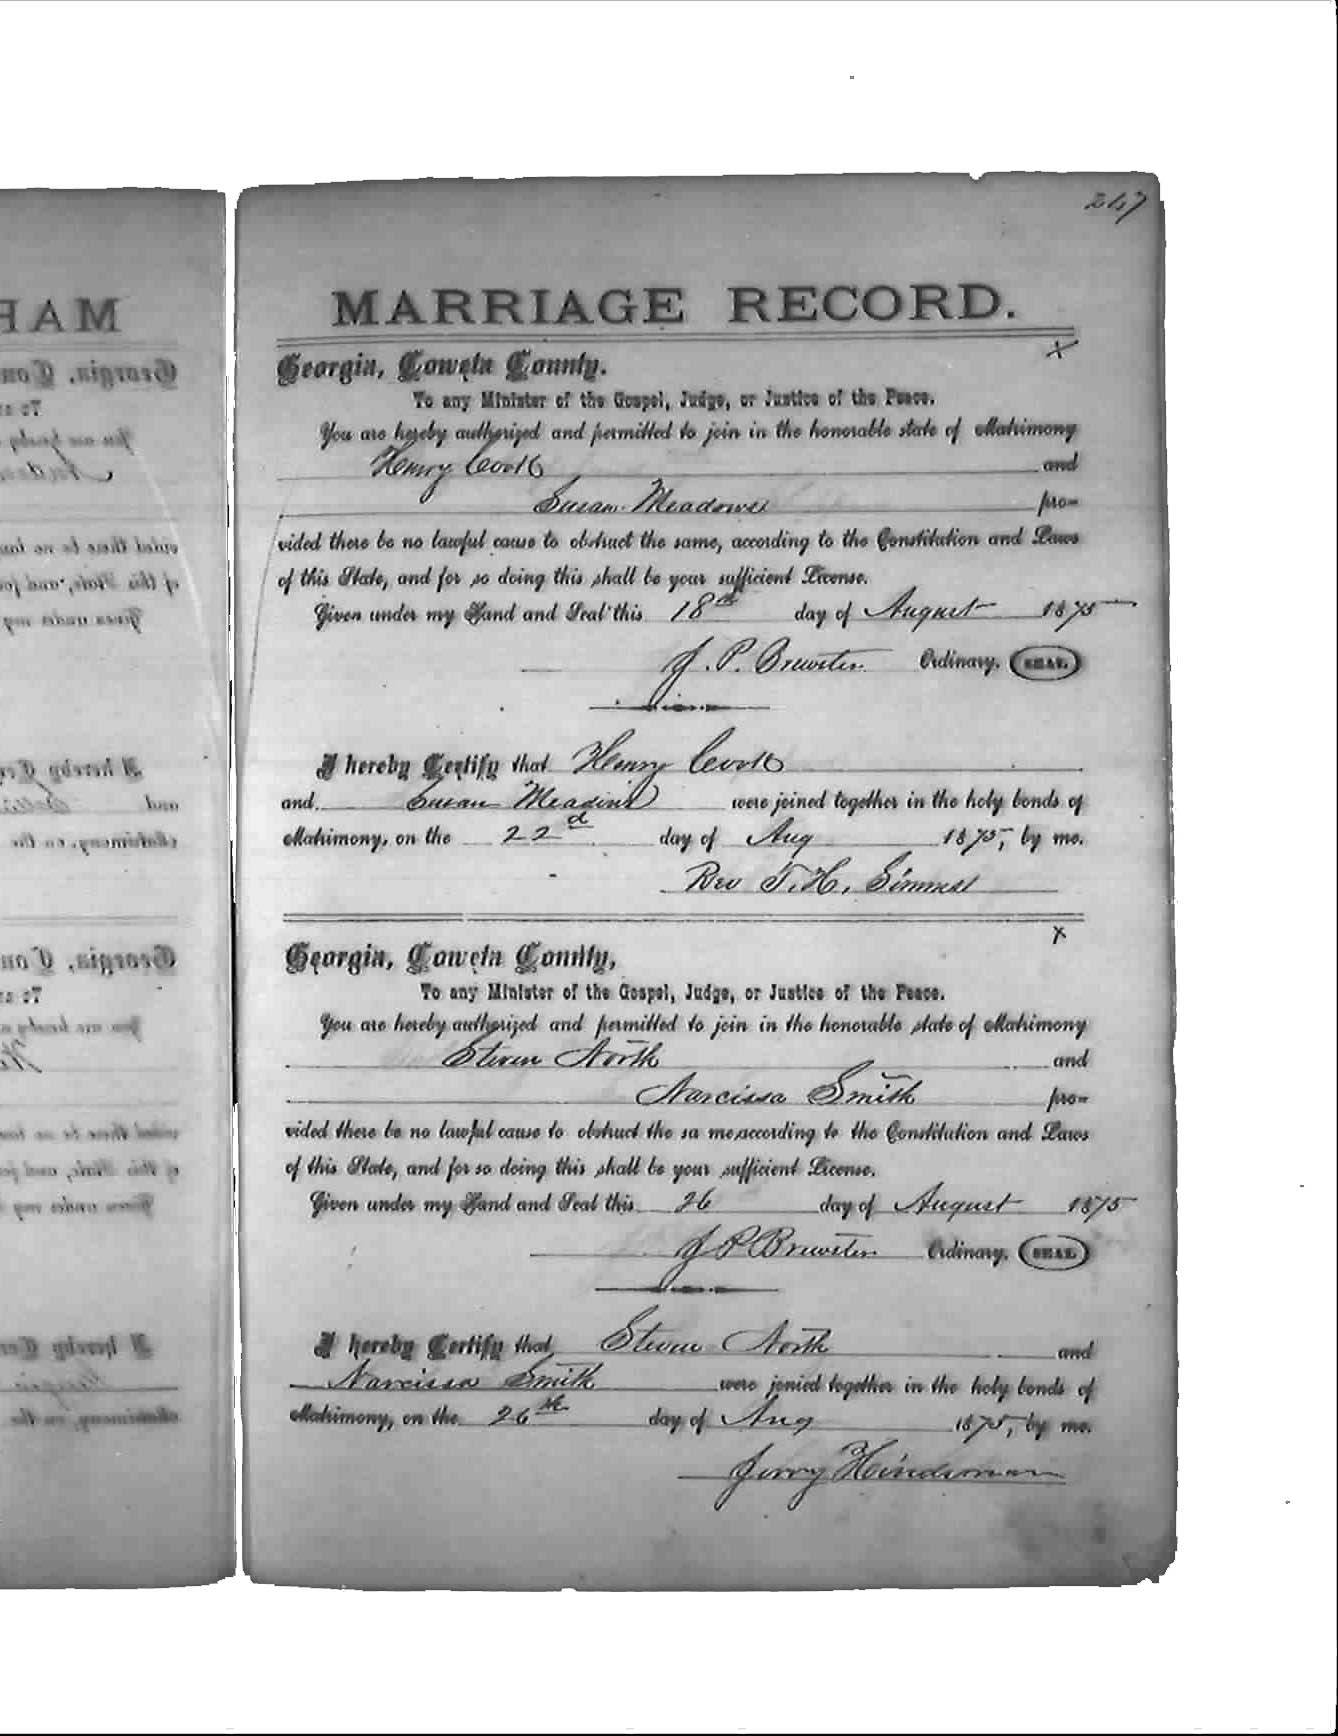 247
MARRIAGE RECORD.
x
Georgia, Coweta County.
To any Minister of the Gospel, Judge, or Justice of the Peace.
You are hereby authorized and permitted to join in the honorable state of Matrimony
Henry Cook and
Susan Meadows pro-
vided there be no lawful cause to obstruct the same, according to the Constitution and Laws
of this State, and for so doing this shall be your sufficient License.
Given under my Hand and Seal this 18th day of August 1875
J. P. Brewster Ordinary. SEAL.
I hereby Certify that Henry Cook
and Susan were joined together in the holy bonds of
Matrimony, on the 22d day of Aug 1875, by me.
Rev T. H.
x
Georgia, Coweta County,
To any Minister of the Gospel, Judge, or Justice of the Peace.
You are hereby authorized and permitted to join in the honorable state of Matrimony
Steven North and
Narcissa Smith pro-
vided there be no lawful cause to obstruct the sa me,according to the Constitution and Laws
of this State, and for so doing this shall be your sufficient License.
Given under my Hand and Seal this 26 day of August 1875
J P Brewster Ordinary. SEAL
I hereby Certify that Steven North and
Narcissa Smith were jonied together in the holy bonds of
Matrimony, on the 26th day of Aug 1875, by me.
Jerry Hindsman